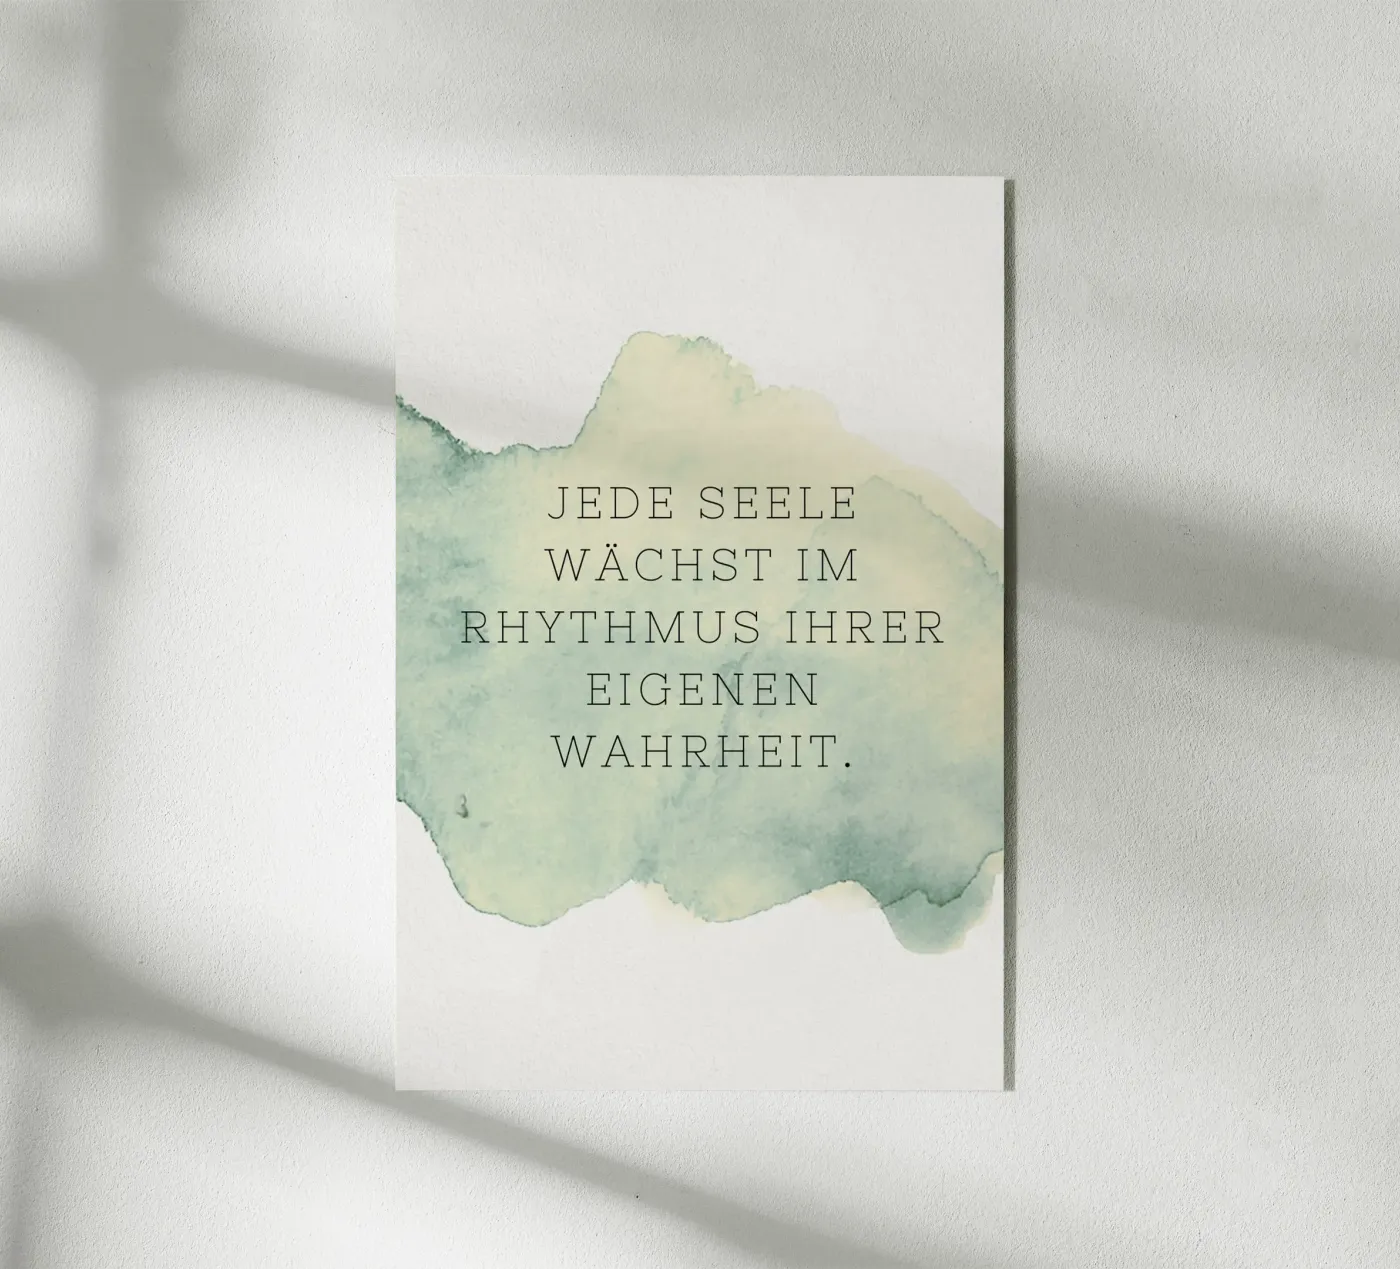 JEDE SEELE
WÄCHST IM
RHYTHMUS IHRER
EIGENEN
WAHRHEIT.